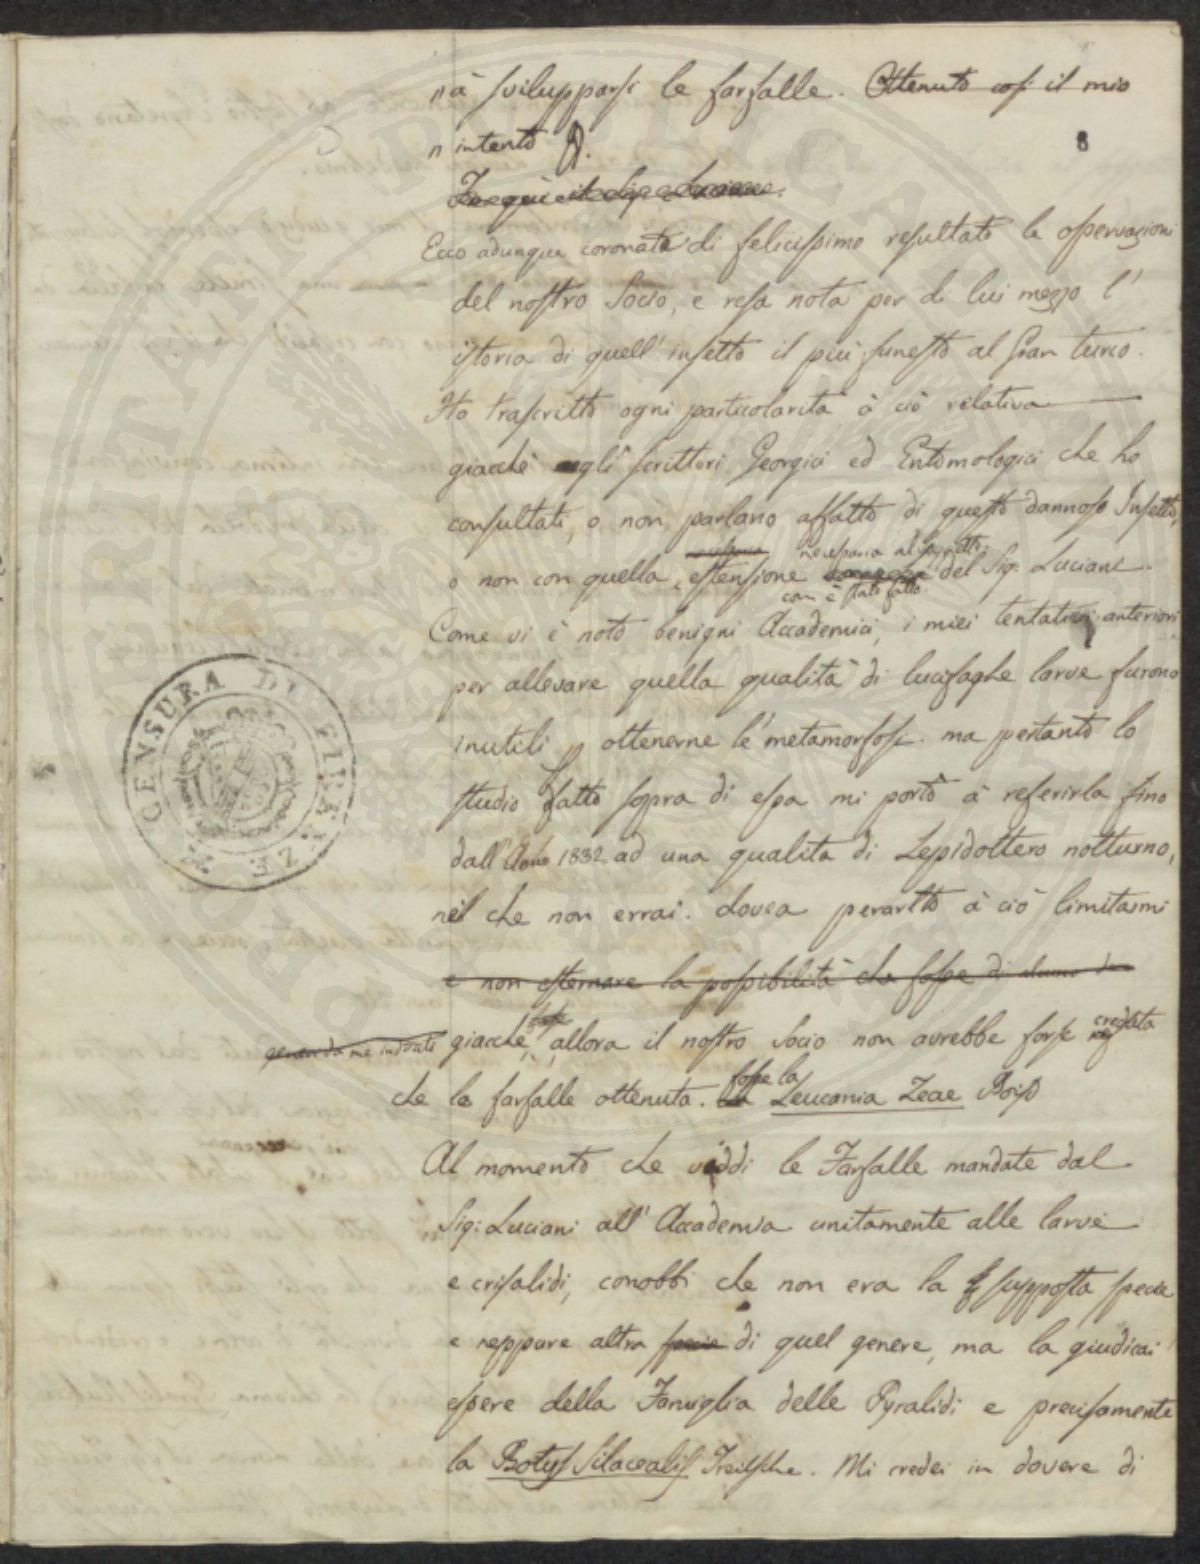 " à svilupparsi le farfalle. Ottenuto così il mio
" intento
8
Fin qui il Sig. Luciani.
Ecco adunque coronate di felicissimo resultato le osservazioni
del nostro Socio, e resa nota per di lui mezzo l'
istoria di quell'insetto il più funesto al Gran turco.
Ho trascritto ogni particolarità à ciò relativa
giacchè gli scrittori Georgici ed Entomologici che ho
consultati, o non parlano affatto di questo dannoso Insetto,
necessaria al soggetto
o non con quella estensione del Sig. Luciani.
com'è stato fatto
Come vi è noto benigni Accademici, i miei tentativi anteriori
per allevare quella qualità di lucifaghe larve furono
inutili ottenerne le metamorfosi. ma pertanto lo
studio fatto sopra di essa mi portò à referirla fino
dall'Anno 1832 ad una qualità di Lepidottero notturno,
nel che non errai. dovea perartto à ciò limitarmi
e non esternare la possibilità che fosse di
genere da me indicato giacchè allora il nostro Socio non avrebbe forse creduta
che le farfalle ottenute. fosse la Leucania Zeae Boisd
Al momento che viddi le Farfalle mandate dal
Sig: Luciani all'Accademia unitamente alle larve
e crisalidi, conobbi che non era la supposta specie
e neppure altra specie di quel genere, ma la giudicai
essere della Famiglia delle Pyralidi e precisamente
la Botys Silacealis Treitsche. Mi credei in dovere di
CENSURA DI FIRENZE